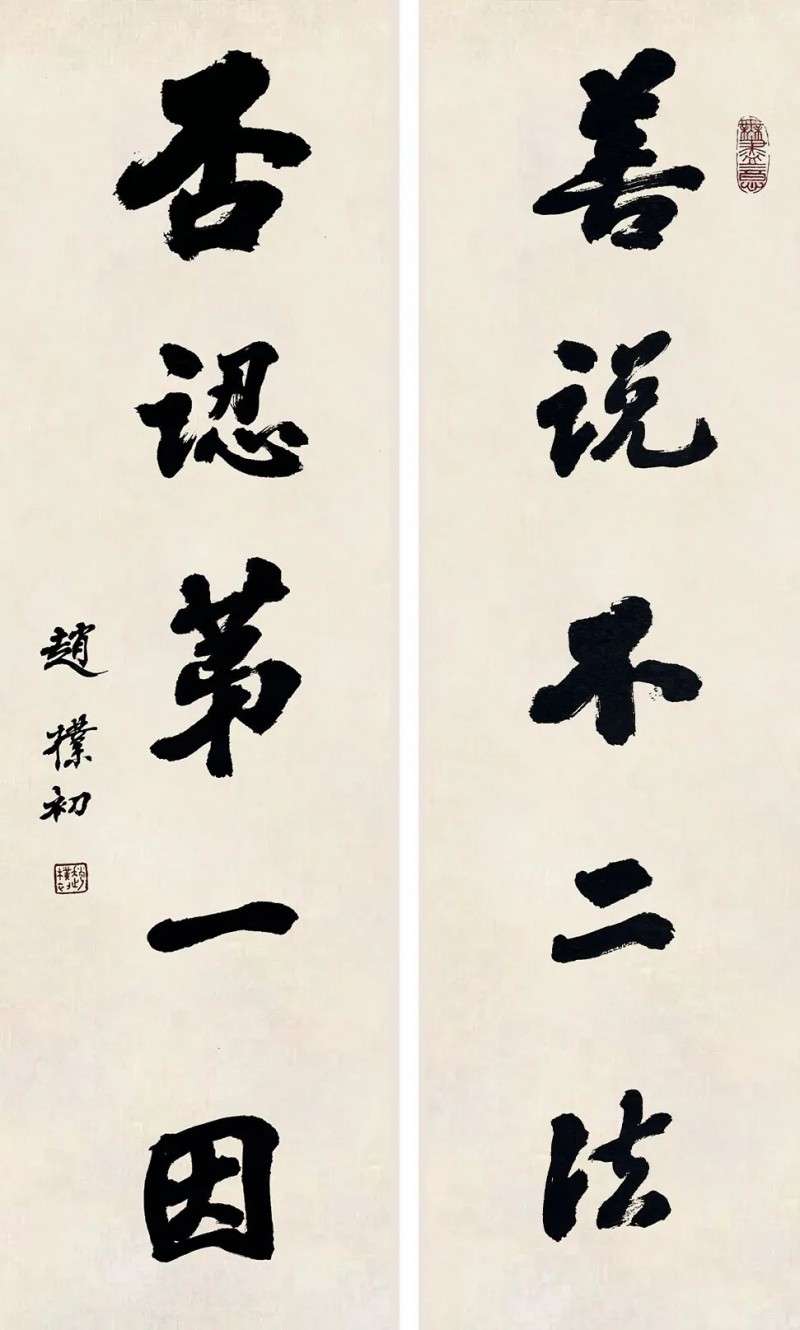 善说不二法
否認第一因
趙樸初